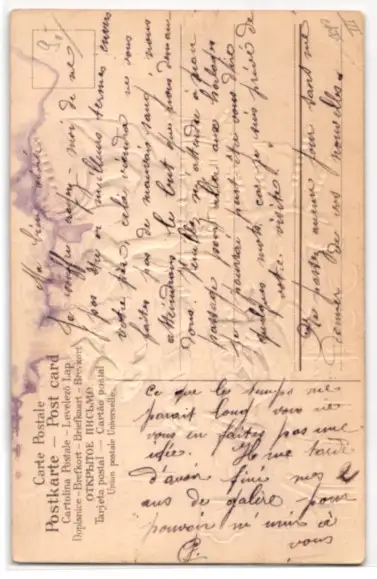 Carte Postale
Postkarte — Post card
Cartolina Postale — Levelező Lap
Dopisnice — Brefkort — Briefkaart — Brevkort
ОТКРЫТОЕ ПИСЬМО
Tarjeta postal — Cartão postal
Union postale Universelle.
Ma bien
Je souffre moi de ne
pas être en meilleurs termes envers
votre père, cela viendra ne vous
faites pas de mauvais sang nous
attendrons le but que nous
veuillez m'attendre à mon
passage
Je pourrai peut être vous dire
quelques mots, car je suis privé de
votre visite!
Je passe aucun jour sans me
de vos nouvelles.
ce que le temps me
parait long vous ne
vous en faites pas une
idée. Il me tarde
d'avoir fini mes 2
ans de galère pour
pouvoir m'unir à
vous